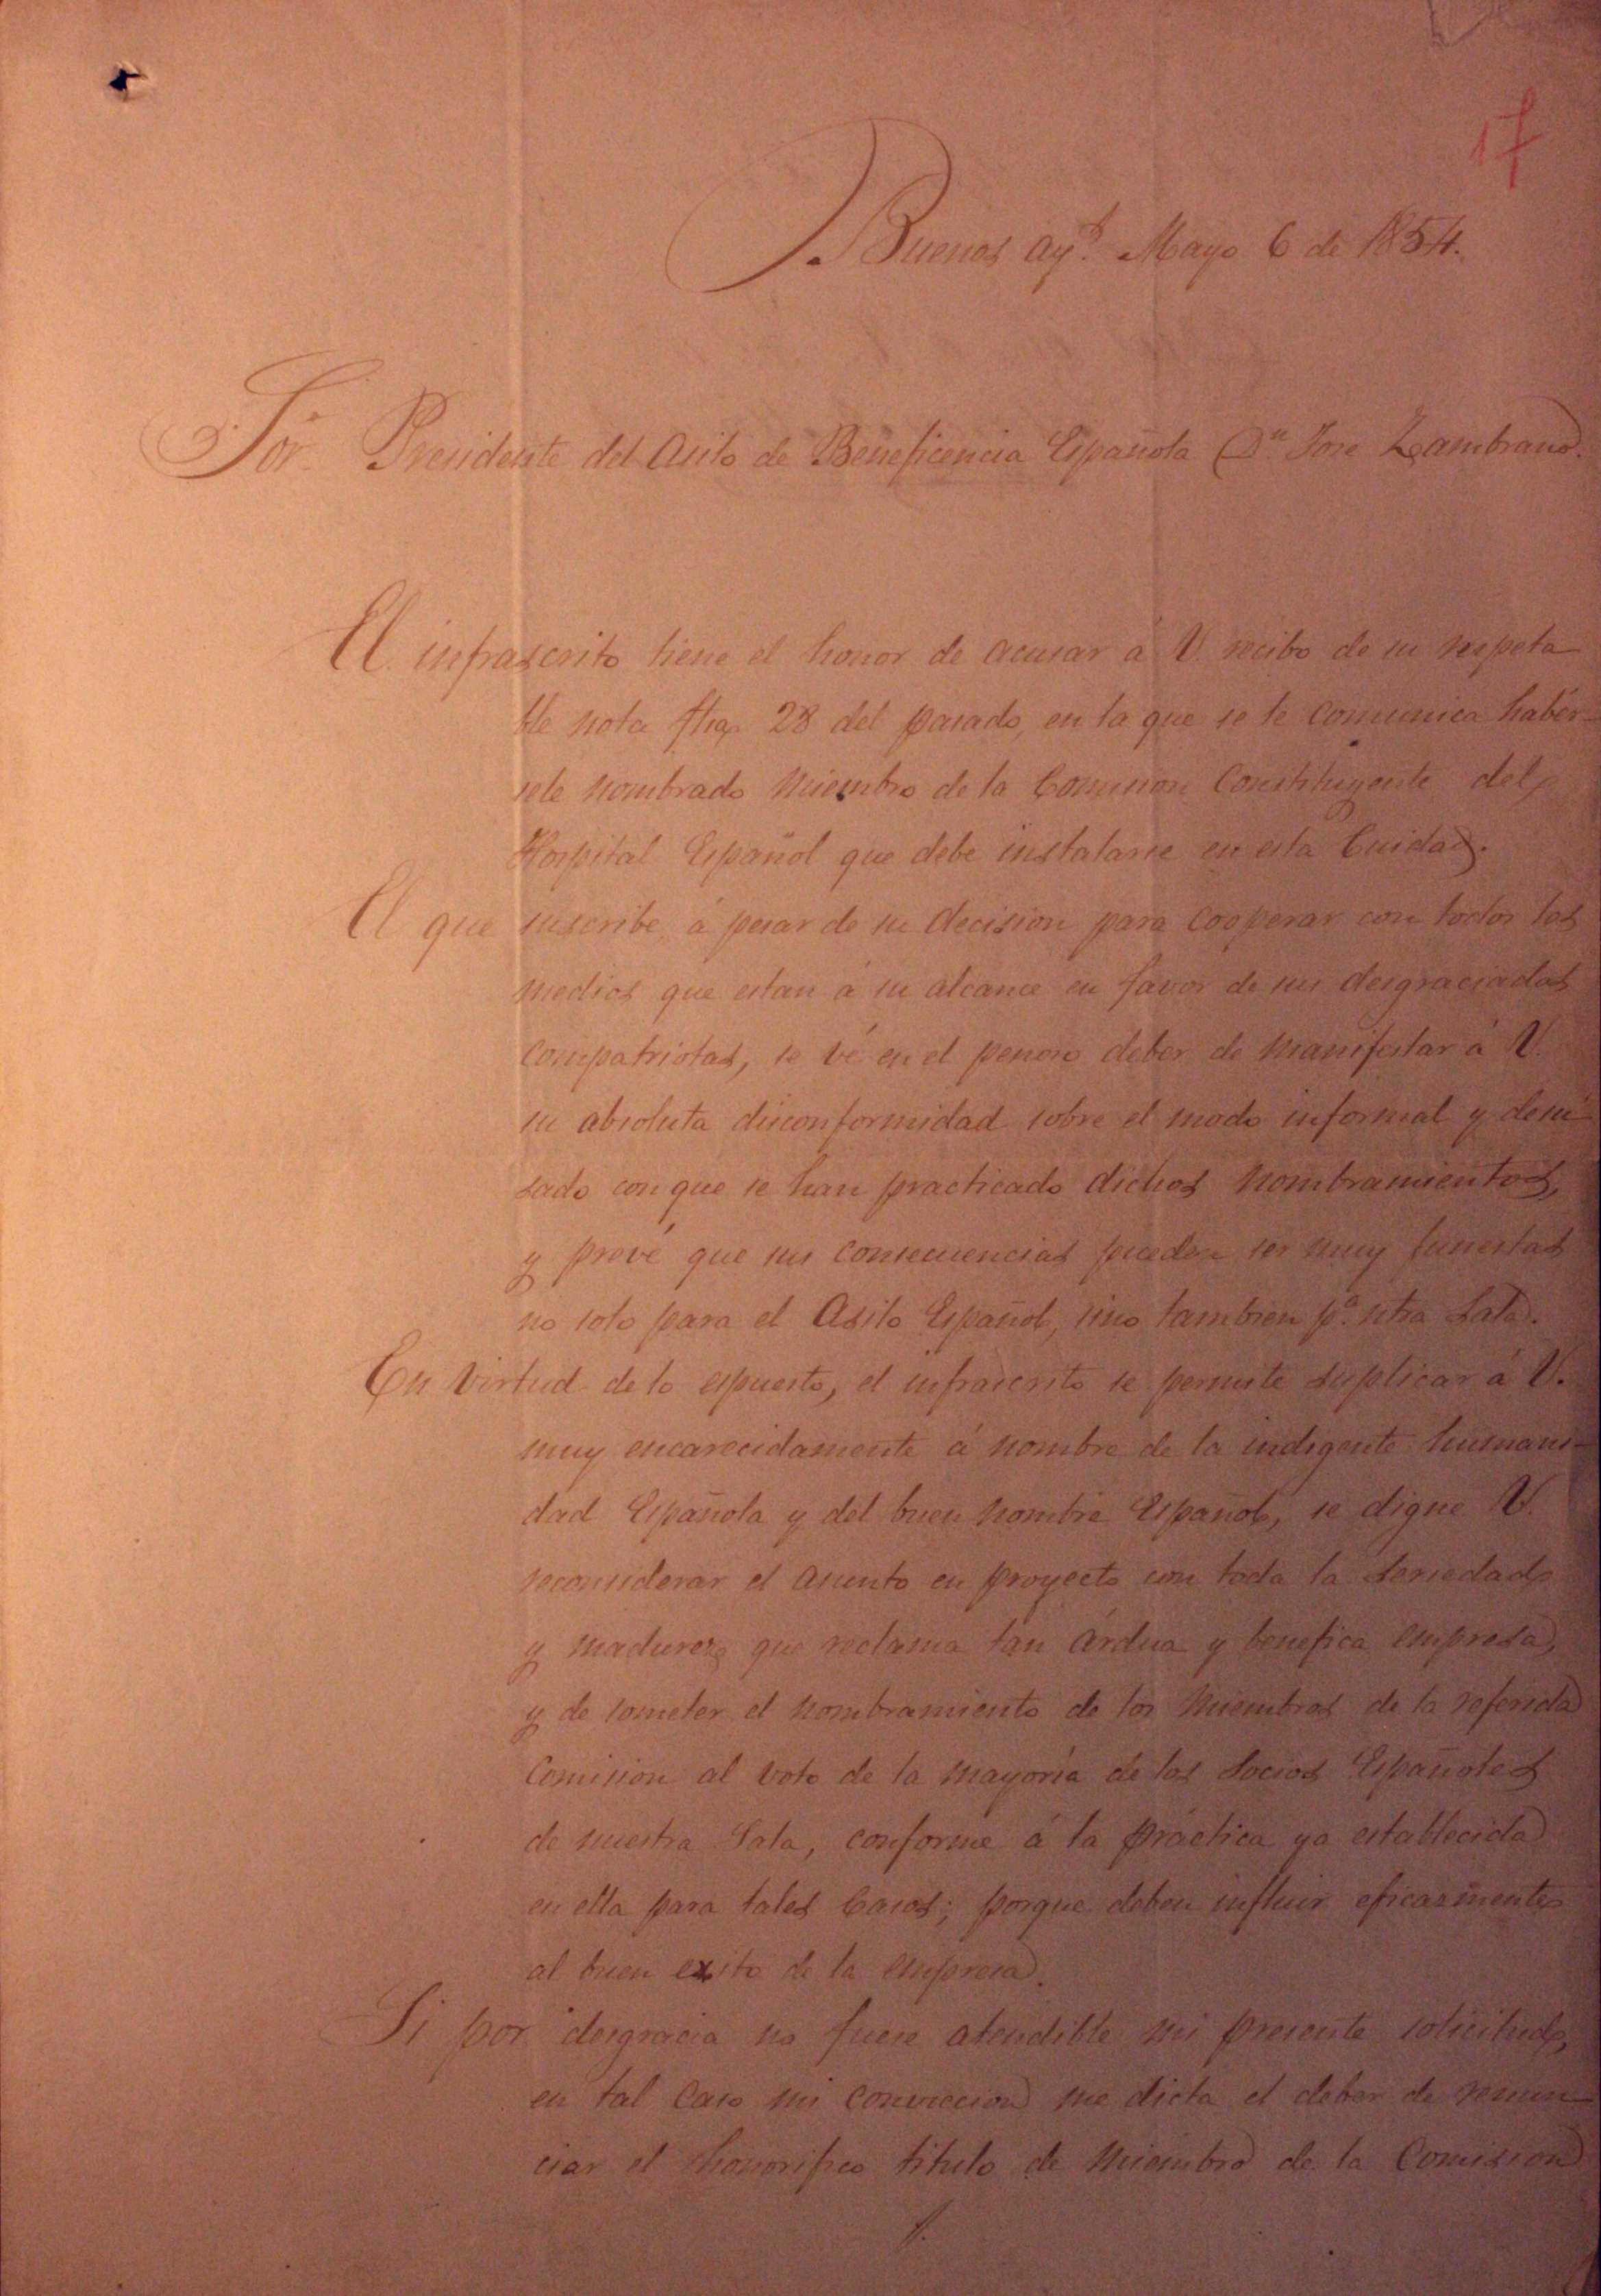 17
Buenos Ays. Mayo 6 de 1854.
Sor. Presidente del Asilo de Beneficencia Española Dn. Jose Zambrano.
El infrascrito tiene el honor de acusar á V. recibo de su respeta
ble nota fha 28 del pasado, en la que se le comunica haber-
sele nombrado Miembro de la Comision Constituyente del
Hospital Español que debe instalarse en esta Cuidad.
El que suscribe á pesar de su decision para cooperar con todos los
medios que estan á su alcance en favor de sus desgraciados
compatriotas, se vé en el penoso deber de manifestar á V.
su absoluta disconformidad sobre el modo informal y desu-
sado con que se han practicado dichos nombramientos,
y prevé que sus consecuencias pueden ser muy funestas
no solo para el Asilo Español, sino tambien pa. ntra Sala.
En virtud de lo espuesto, el infrascrito se permite suplicar á V.
muy encarecidamente á nombre de la indigente humani-
dad Española y del buen nombre Español, se digne V.
reconsiderar el asunto en proyecto con toda la seriedad
y madurez que reclama tan árdua y benefica empresa,
y de someter el nombramiento de los Miembros de la referida
Comision al voto de la mayoría de los Socios Españoles
de nuestra Sala, conforme á la práctica ya establecida
en ella para tales Casos; porque deben influir eficazmente
al buen exito de la empresa.
Si por desgracia no fuese atendible mi presente solicitud,
en tal Caso mi conviccion me dicta el deber de renun-
ciar el honorifico titulo de Miembro de la Comision